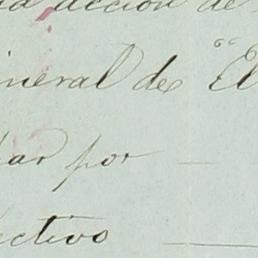 acción de
ineral de "El
par por
ectivo